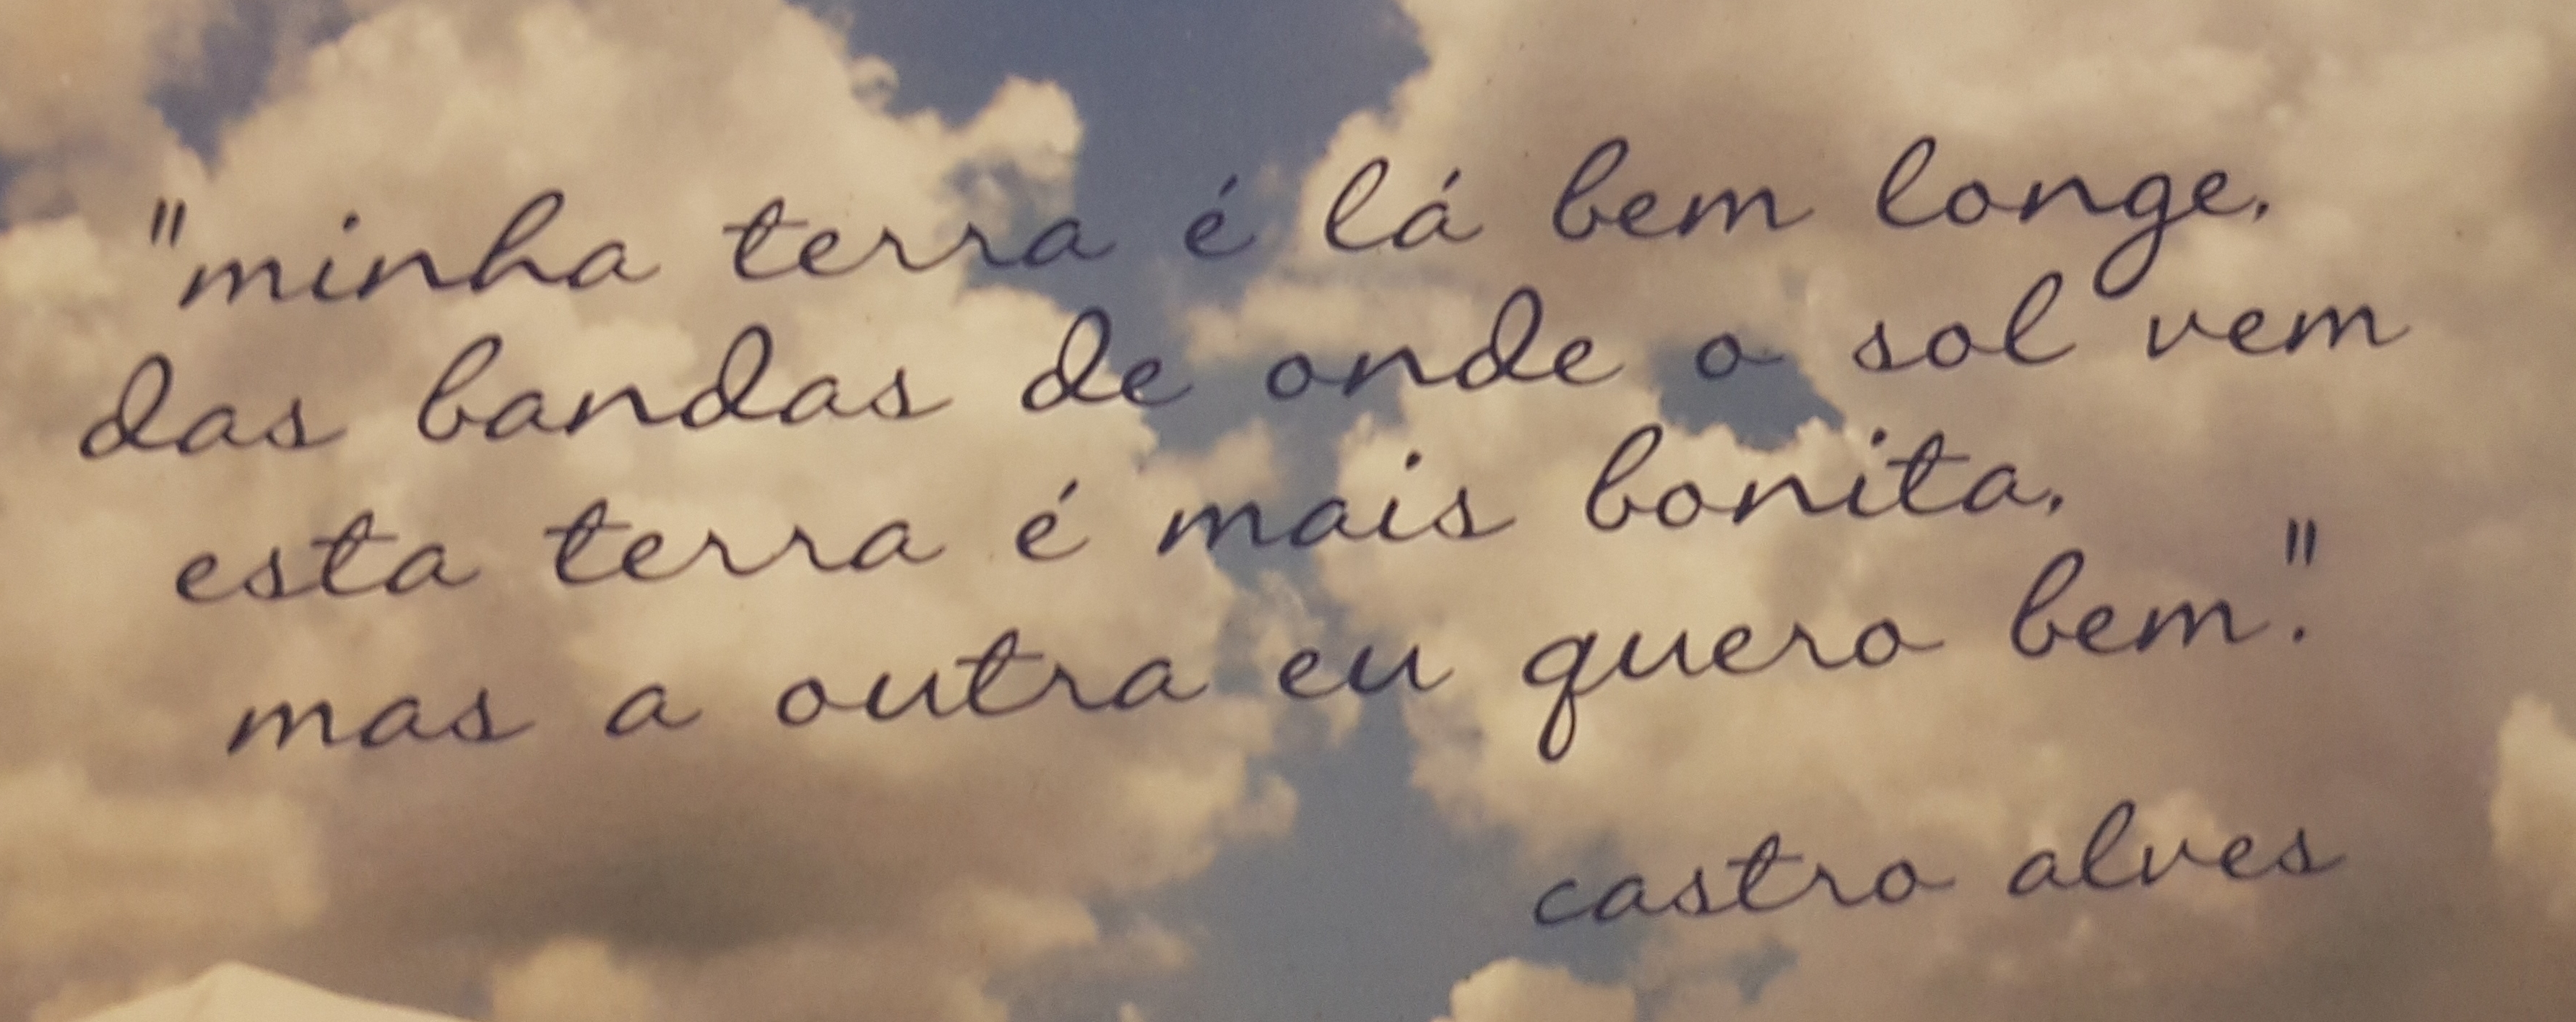 "minha terra é lá bem longe,
das bandas de onde o sol vem
esta terra é mais bonita,
mas a outra eu quero bem".
castro alves